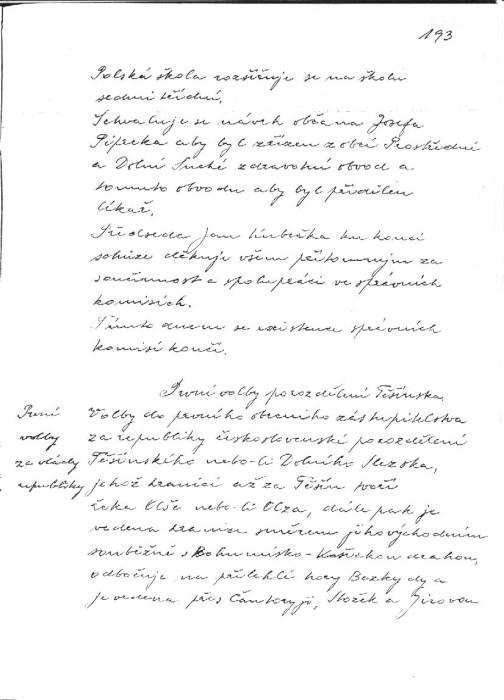 193
Polská škola rozšiřuje se na školu
sedmi třídní.
Schvaluje se návrh občana Josefa
Pipecka aby byl zřízen z obcí Prostřední
a Dolní Suché zdravotní obvod a
tomuto obvodu aby byl přidělen
lékař.
Předseda Jan Hubečka ku konci
schůze děkuje všem přítomným za
součinnost a spolupráci ve správních
komisích.
Tímto dnem se existence správních
komisí končí.
První volby po rozdělení Těšínska
První
volby
za vlády
republiky
Volby do prvního obecního zastupitelstva
za republiky československé po rozdělení
Těšínského nebo-li Dolního Slezska,
jehož hranici až za Těšín tvoří
řeka Olše nebo-li Olza, dále pak je
vedena hranice směrem jihovýchodním
souběžně s Bohumínsko-Košickou drahou,
odbočuje na přilehlé hory Bezkydy a
je vedena přes Čantoryji, Stožek a Girovou